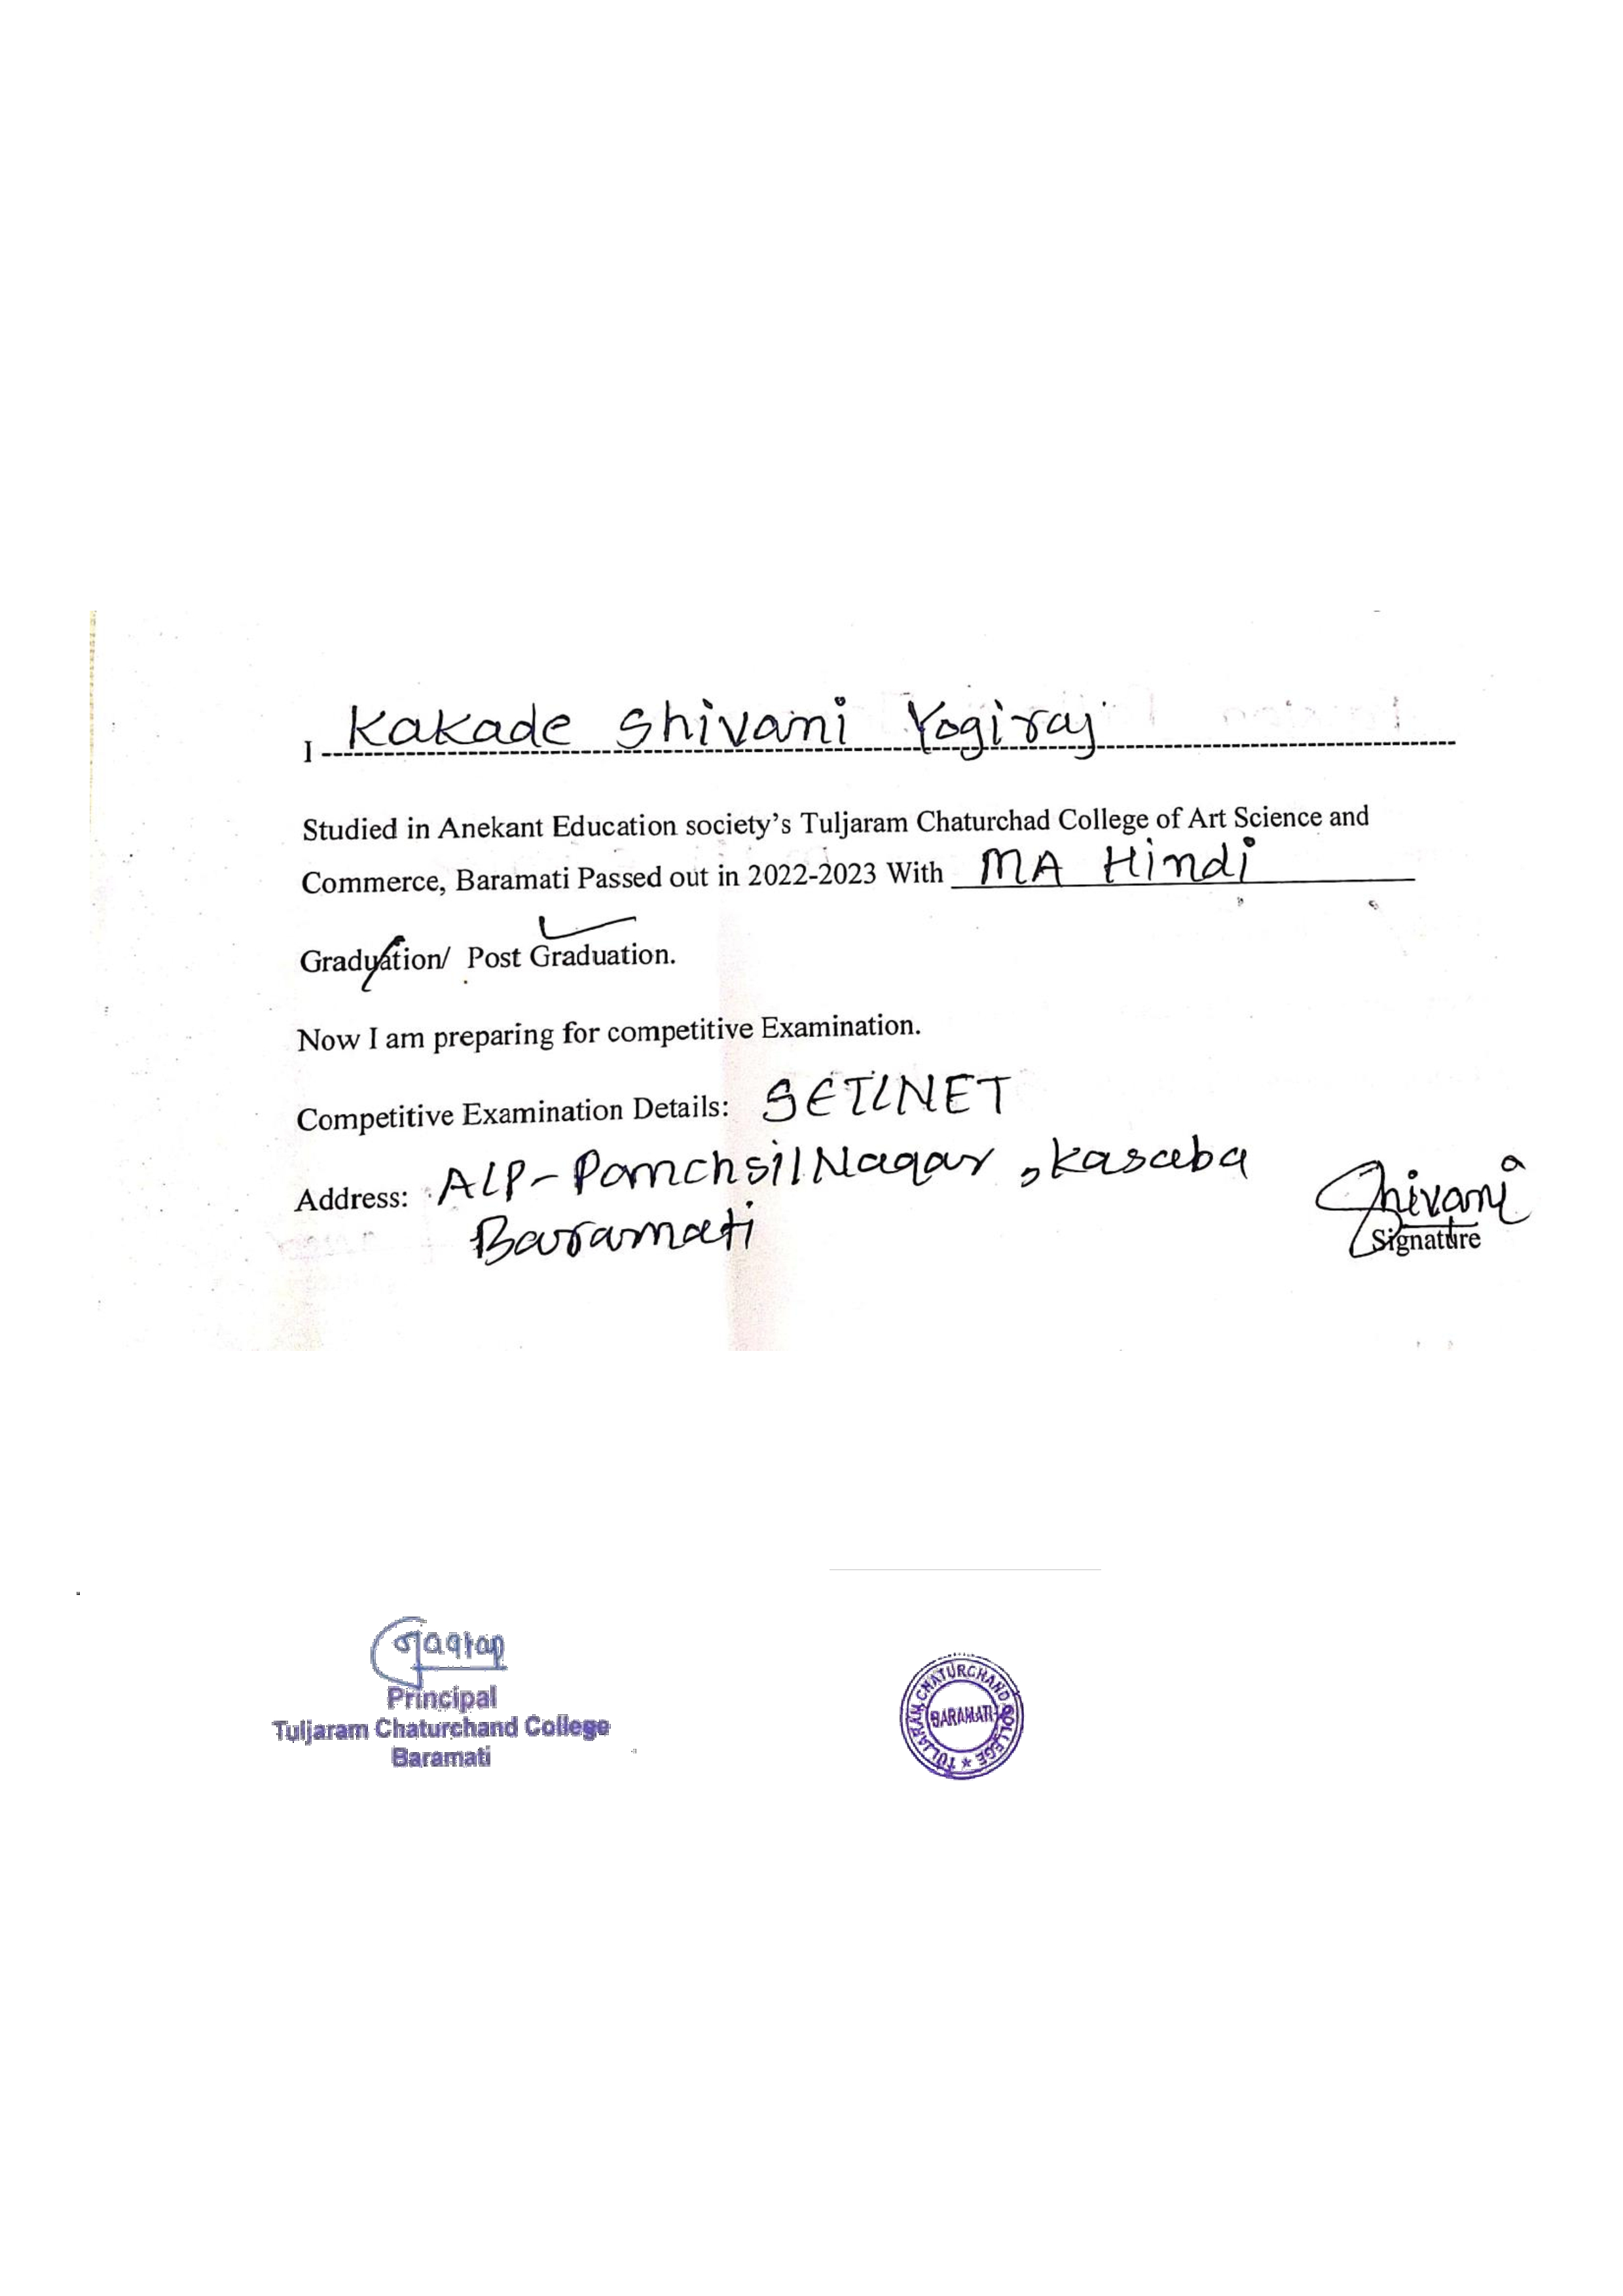 I Kakade Shivani Yogiraj
Studied in Anekant Education society's Tuljaram Chaturchad College of Art Science and
Commerce, Baramati Passed out in 2022-2023 With MA Hindi
Graduation/ Post Graduation.
Now I am preparing for competitive Examination.
Competitive Examination Details: SET/NET
Address: A/P- PamchsilNagar, Kasaba
Baramati
Shivani
Signature
Principal
Tuljaram Chaturchand College
Baramati
TULJARAM CHATURCHAND COLLEGE
BARAMATI